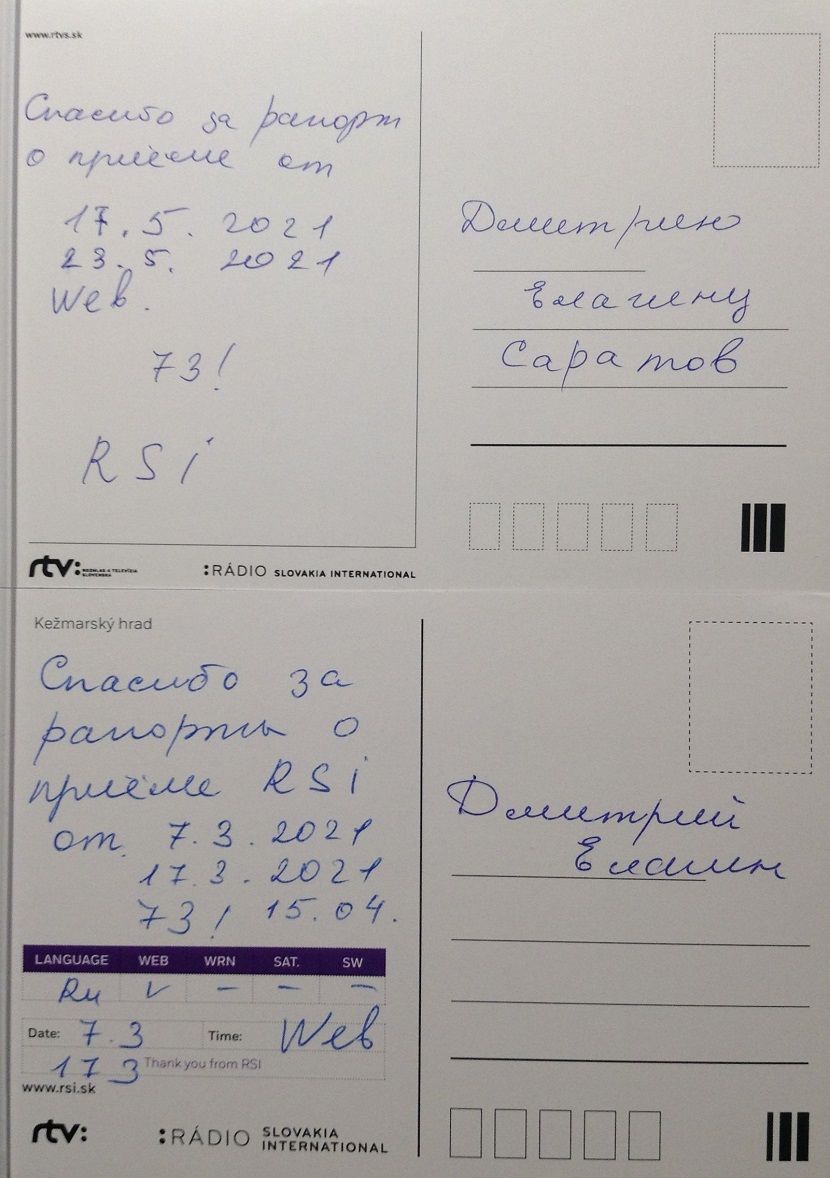 www.rtvs.sk
Спасибо за рапорт
о приёме от
17.5.2021
23.5.2021
Web.
73!
RSI
Дмитрию
Елагину
Саратов
rtv:
ROZHLAS A TELEVÍZIA
SLOVENSKA
:RÁDIO SLOVAKIA INTERNATIONAL
Kežmarský hrad
Спасибо за
рапорты о
приёме RSI
от 7.3.2021
17.3.2021
73! 15.04.
LANGUAGE WEB WRN SAT. SW
Ru v – – –
Date: 7.3 Time: Web
17 3 Thank you from RSI
www.rsi.sk
rtv:
:RÁDIO SLOVAKIA
INTERNATIONAL
Дмитрий